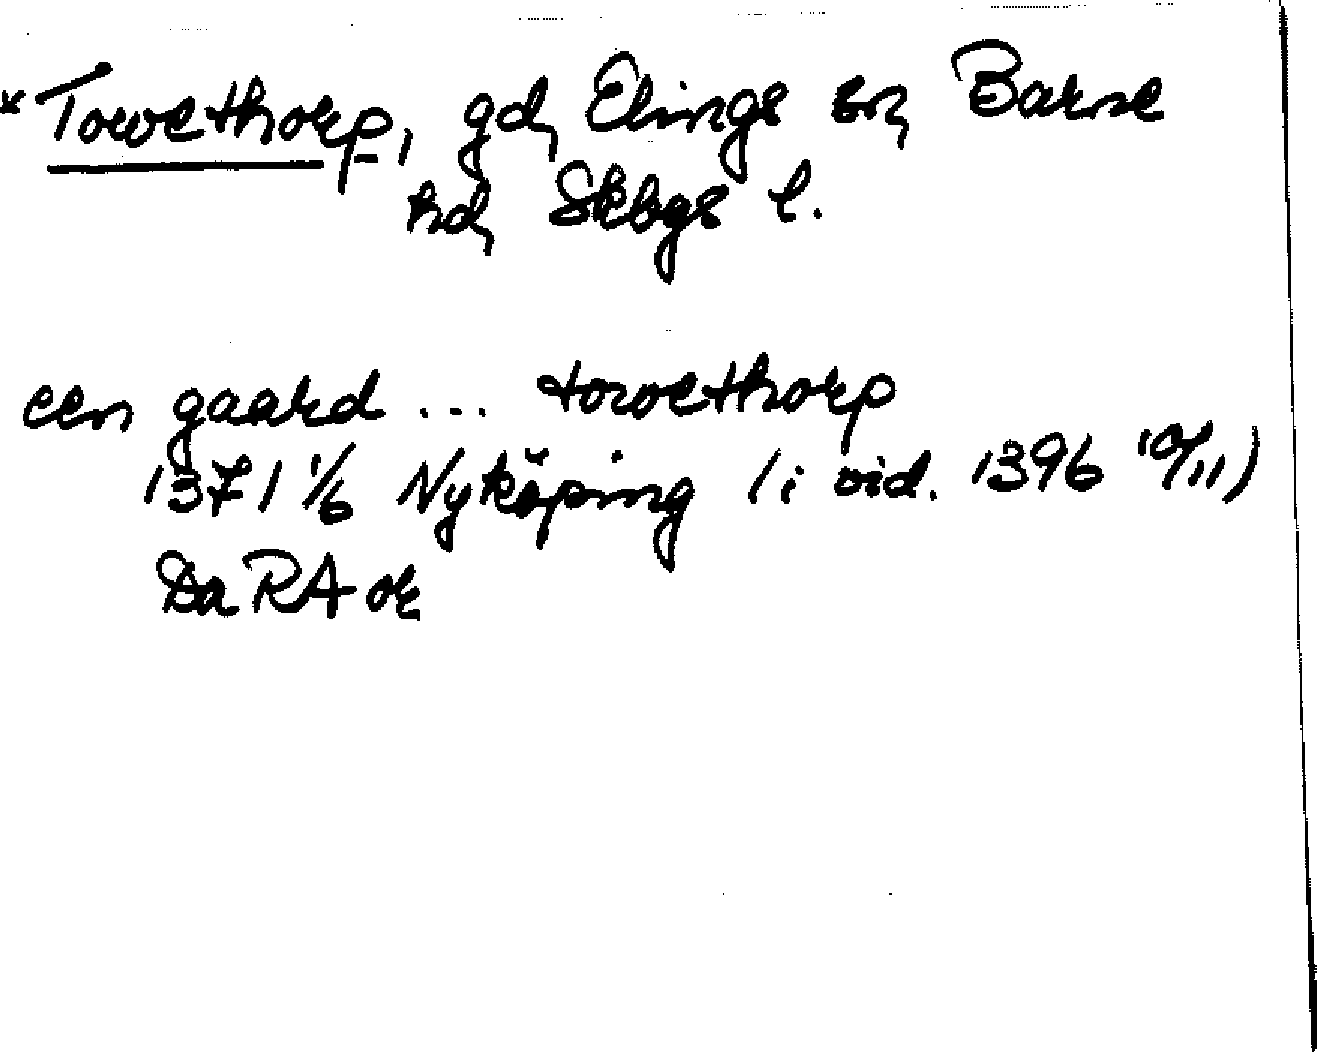 *Towethorp, gd, Elings sn, Barne
hd, Skbgs l.
een gaard ... towethorp
1371 1/6 Nyköping (i vid. 1396 10/11)
Da RA or